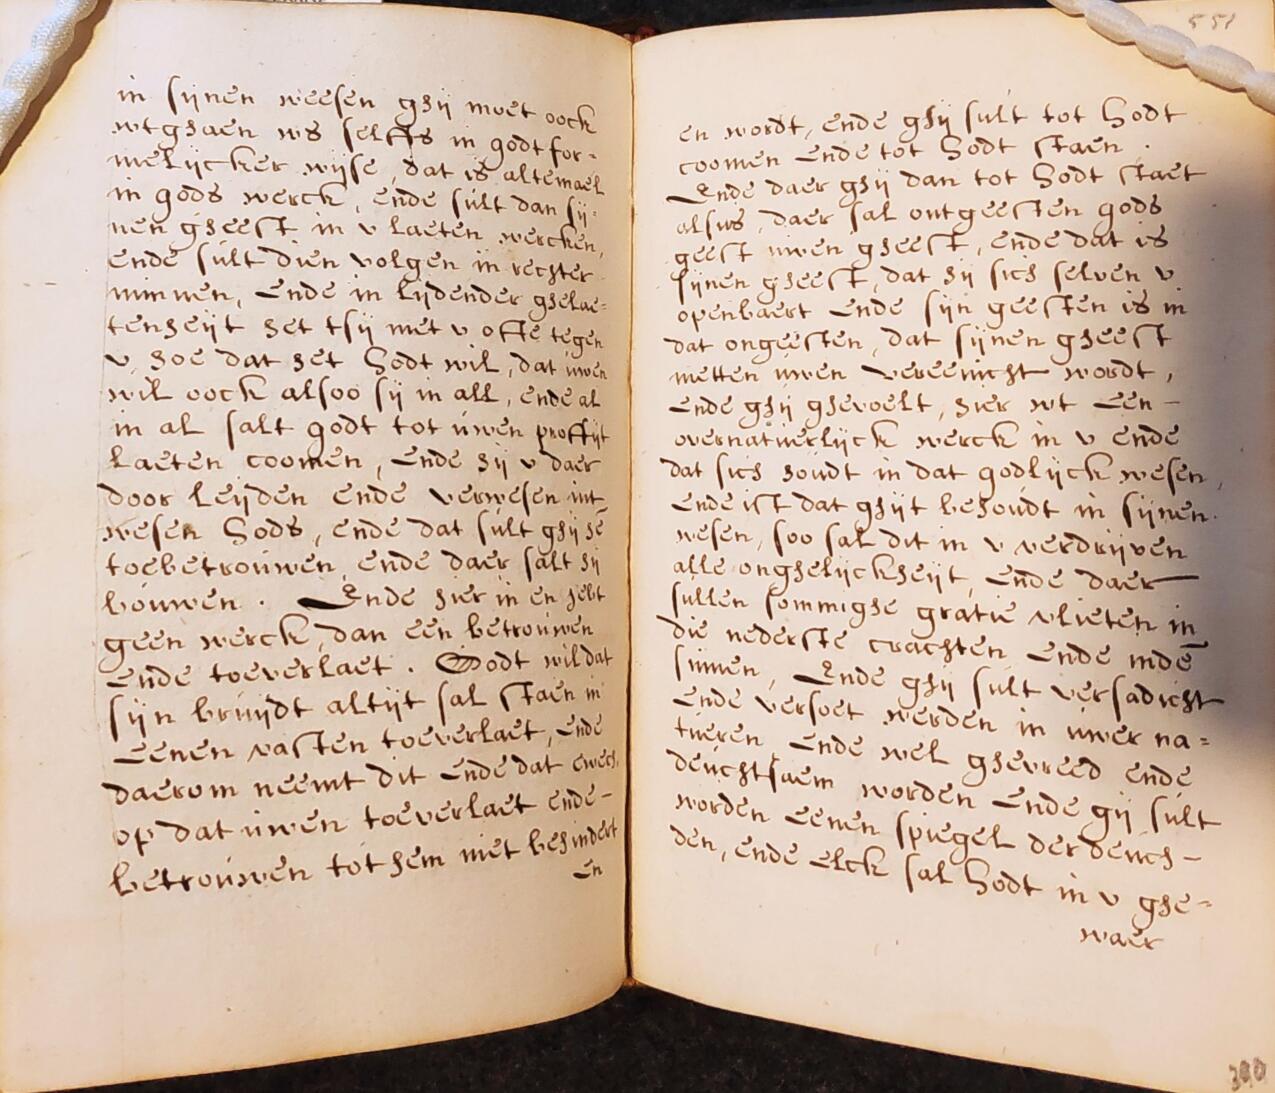 in sijnen weesen ghij moet oock
wtghaen ws selffs in godt for=
melijcker wijse, dat is altemael
in gods werck, ende sult dan sij=
nen gheest in v laeten wercken,
ende sult dien volgen in rechter
minnen, ende in lijdender ghelae=
tenheijt het tsij met v ofte tegen
v, hoe dat het Godt wil, dat uwen
wil oock alsoo sij in all, ende al
in al salt godt tot uwen proffijt
laeten coomen, ende hij v daer
door leijden ende verwesen int
wesen Gods, ende dat sult ghij hē
toebetrouwen, ende daer salt hij
bouwen. Ende hier in en hebt
geen werck, dan een betrouwen
ende toeverlaet. Godt wil dat
sijn bruijdt altijt sal staen in
eenen vasten toeverlaet, ende
daerom neemt dit ende dat ewech,
op dat uwen toeverlaet ende-
betrouwen tot hem niet behindert
en
551
en wordt, ende ghij sult tot Godt
coomen ende tot Godt staen.
Ende daer ghij dan tot Godt staet
alsus, daer sal ontgeesten gods
geest uwen gheest, ende dat is
sijnen gheest, dat hij sich selven v
openbaert ende sijn geesten is in
dat ongeesten, dat sijnen gheest
metten uwen vereenicht wordt,
ende ghij ghevoelt, hier wt een-
overnatuerlijck werck in v ende
dat sich houdt in dat godlijck wesen,
ende ist dat ghijt behoudt in sijnen.
wesen, soo sal dit in v verdrijven
alle onghelijckheijt, ende daer
sullen sommighe gratie vlieten in
die nederste crachten ende indē
sinnen, Ende ghij sult versadicht
ende versoet werden in uwer na=
tueren ende wel ghevreed ende
deuchtsaem worden ende gij sult
worden eenen spiegel der deuch-
den, ende elck sal Godt in v ghe=
waer
300